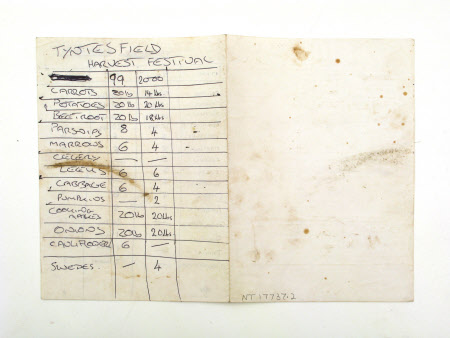 TYNTESFIELD
HARVEST FESTIVAL
99 2000
CARROTS 20lb 14lbs
POTATOES 20lb 20lbs
BEETROOT 20lb 18lbs
PARSNIPS 8 4
MARROWS 6 4
CELERY — —
LEEKS 6 6
CABBAGE 6 4
PUMPKINS — 2
COOKING
APPLES 20lb 20lbs
ONIONS 20lb 20lbs
CAULIFLOWER 6 —
SWEDES — 4
NT 17737.2